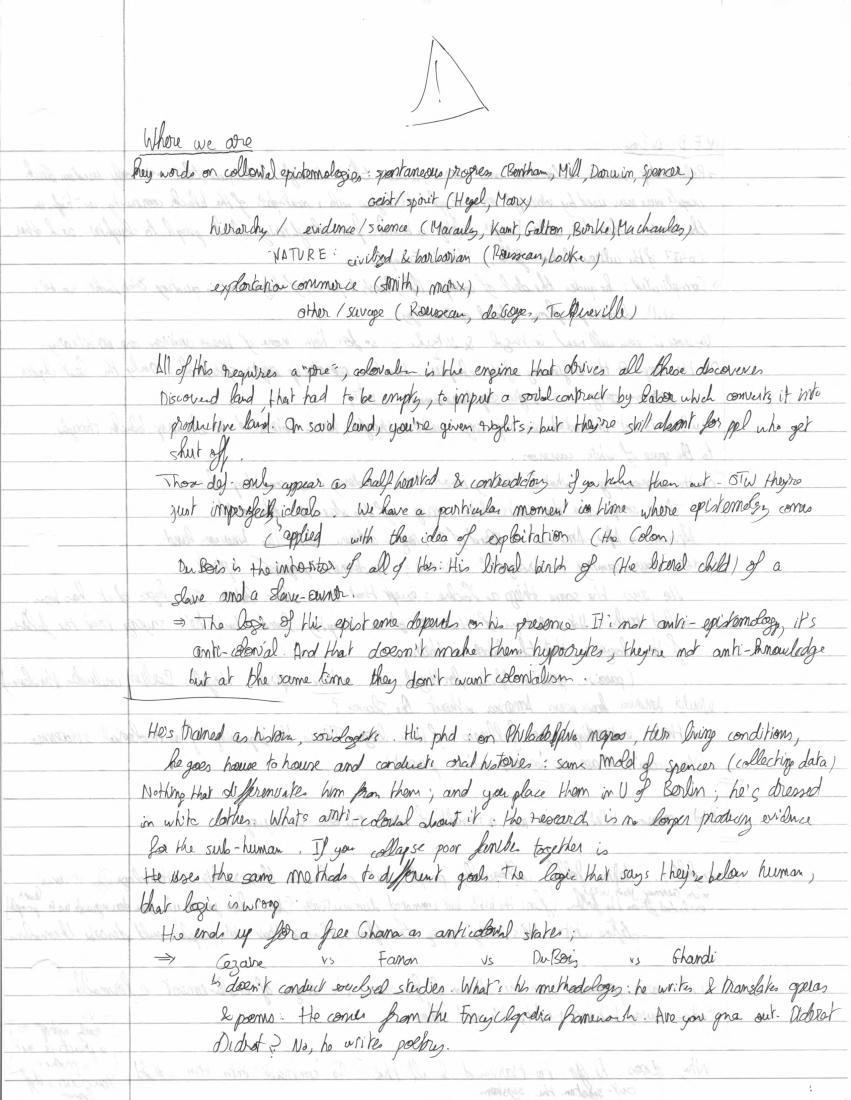 !
Where we are
Key words on collonial epistemologies : spontaneous progress (Bentham, Mill, Darwin, Spencer)
Geist/spirit (Hegel, Marx)
hierarchy / evidence/science (Macauly, Kant, Galton, Burke) Machaulay)
NATURE : civilized & barbarian (Rousseau, Locke)
exploitation commerce (Smith, Marx)
other / savage ( Rousseau, de Gouges, Tocqueville)
All of this requires a "pre", colonialism is the engine that drives all these discoveries
Discovered land, that had to be empty, to imput a social contract by labor which converts it into
productive land. In said land, you're given rights; but they're still absent for ppl who get
shut off.
Those def. only appear as half hearted & contradictory if you take them out - OTW they're
just imperfect ideals. We have a particular moment in time where epistemology comes
applied with the idea of exploitation (the Colon)
Du Bois is the inheritor of all of this: His literal birth of (the literal child) of a
slave and a slave-owner.
⇒ The logic of his episteme depends on his presence. It is not anti-epistemology, it's
anti-colonial. And that doesn't make them hypocrytes, they're not anti-knowledge
but at the same time they don't want colonialism.
He's trained as historian, sociologist. His phd : on Philadelphia negros, their living conditions,
he goes house to house and conducts oral histories : same mold of Spencer (collecting data)
Nothing that differenciates him from them; and you place them in U of Berlin; he's dressed
in white clothes. What's anti-colonial about it : the research is no longer producing evidence
for the sub-human. If you collapse poor together is
He uses the same methods to different goals. The logic that says they're below human,
that logic is wrong
He ends up for a free Ghana as anticolonial states;
⇒ Cezaire vs Fanon vs Du Bois vs Ghandi
↳ doesn't conduct studies. What's his methodology: he writes & translates operas
& poems. He comes from the Encyclopedia framework. Are you gna out- Diderot
Didrot? No, he writes poetry.